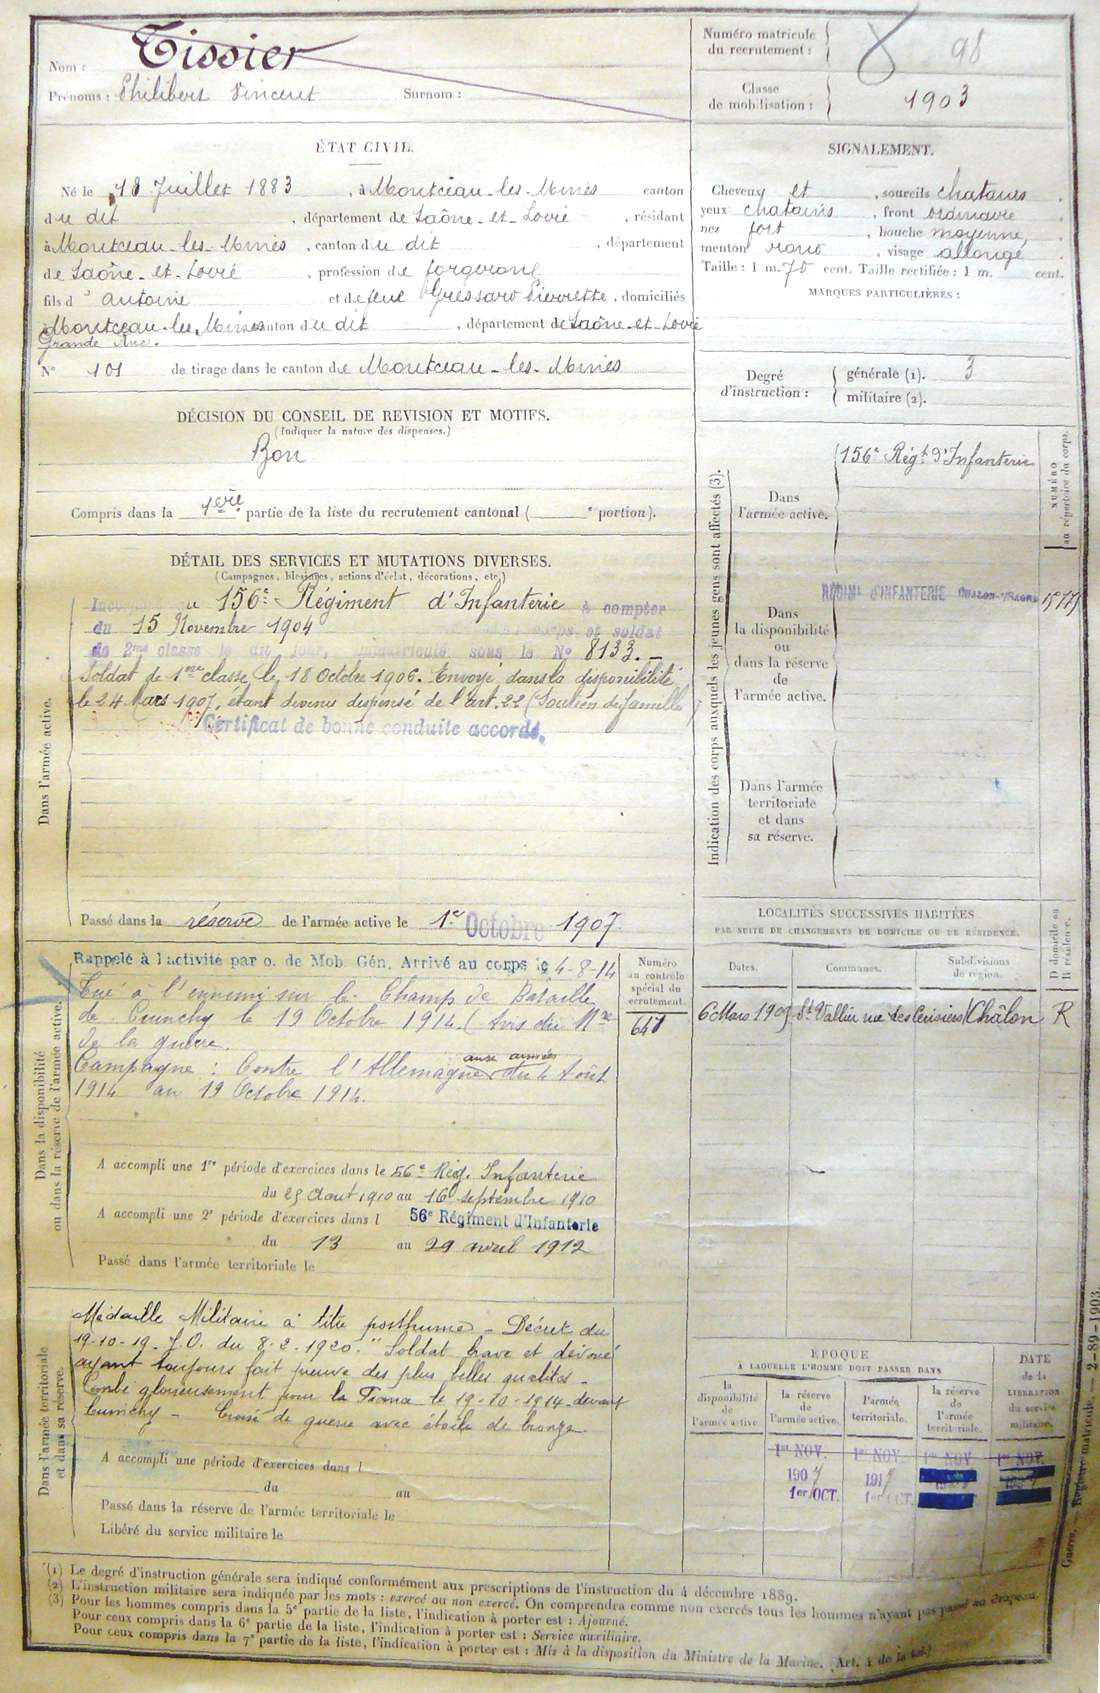 Nom : Tissier
Prénoms : Philibert Vincent Surnom :
Numéro matricule du recrutement : 98
Classe de mobilisation : 1903
ÉTAT CIVIL.
Né le 18 Juillet 1883, à Montceau-les-Mines canton
du dit, département de Saône-et-Loire, résidant
à Montceau-les-Mines, canton du dit, département
de Saône-et-Loire, profession de forgeron
fils d'Antoine et de feue Gressard Pierrette, domiciliés
à Montceau-les-Mines canton du dit, département de Saône-et-Loire
Grande Rue.
N° 101 de tirage dans le canton de Montceau-les-Mines
SIGNALEMENT.
Cheveux et, sourcils chatains
yeux chatains, front ordinaire
nez fort, bouche moyenne,
menton rond, visage allongé
Taille : 1 m. 70 cent. Taille rectifiée : 1 m. cent.
MARQUES PARTICULIÈRES :
Degré d'instruction : générale (1). 3
militaire (2).
DÉCISION DU CONSEIL DE REVISION ET MOTIFS.
(Indiquer la nature des dispenses.)
Bon
Compris dans la 1ère partie de la liste du recrutement cantonal ( e portion).
DÉTAIL DES SERVICES ET MUTATIONS DIVERSES.
(Campagnes, blessures, actions d'éclat, décorations, etc.)
Dans l'armée active.
Incorporé au 156e Régiment d'Infanterie à compter
du 15 Novembre 1904 corps et soldat
de 2me classe le dit jour, immatriculé sous le No 8133.
Soldat de 1ère classe le 18 Octobre 1906. Envoyé dans la disponibilité
le 24 Mars 1907, étant devenu dispensé de l'art. 22 (Soutien de famille)
Certificat de bonne conduite accordé.
Passé dans la réserve de l'armée active le 1er Octobre 1907.
Indication des corps auxquels les jeunes gens sont affectés (3).
NUMÉRO au répertoire du corps.
Dans l'armée active.
156e Régt d'Infanterie
Dans la disponibilité ou dans la réserve de l'armée active.
RÉGIMt d'INFANTERIE CHALON-s/SAÔNE
Dans l'armée territoriale et dans sa réserve.
Dans la disponibilité ou dans la réserve de l'armée active.
Rappelé à l'activité par o. de Mob. Gén. Arrivé au corps le 4-8-14
Tué à l'ennemi sur le Champ de Bataille
de Cuinchy le 19 Octobre 1914 (Avis du Mre
de la guerre.
Campagne : Contre l'Allemagne aux armées du 4 Août
1914 au 19 Octobre 1914.
A accompli une 1re période d'exercices dans le 56e Rég. Infanterie
du 25 Aout 1910 au 16 septembre 1910
A accompli une 2e période d'exercices dans l 56e Régiment d'Infanterie
du 13 au 29 avril 1912
Passé dans l'armée territoriale le
Numéro au contrôle spécial du recrutement.
641
LOCALITÉS SUCCESSIVES HABITÉES
PAR SUITE DE CHANGEMENTS DE DOMICILE OU DE RÉSIDENCE.
D domicile ou R résidence.
Dates. Communes. Subdivisions de région.
6 Mars 1909 St Vallier rue des Cerisiers Châlon R
Dans l'armée territoriale et dans sa réserve.
Médaille Militaire à titre posthume - Décret du
19-10-19. J.O. du 8-2-1920. " Soldat brave et dévoué
ayant toujours fait preuve des plus belles qualités -
Tombé glorieusement pour la France le 19-10-1914 devant
Cuinchy - Croix de guerre avec étoile de bronze
A accompli une période d'exercices dans l
du au
Passé dans la réserve de l'armée territoriale le
Libéré du service militaire le
ÉPOQUE
À LAQUELLE L'HOMME DOIT PASSER DANS
DATE de la LIBÉRATION du service militaire.
la disponibilité de l'armée active.
la réserve de l'armée active.
l'armée territoriale.
la réserve de l'armée territoriale.
1er NOV. 1er NOV. 1er NOV. 1er NOV.
1907 1917
1er OCT. 1er OCT.
(1) Le degré d'instruction générale sera indiqué conformément aux prescriptions de l'instruction du 4 décembre 1889.
(2) L'instruction militaire sera indiquée par les mots : exercé ou non exercé. On comprendra comme non exercés tous les hommes n'ayant pas passé au drapeau.
(3) Pour les hommes compris dans la 5e partie de la liste, l'indication à porter est : Ajourné.
Pour ceux compris dans la 6e partie de la liste, l'indication à porter est : Service auxiliaire.
Pour ceux compris dans la 7e partie de la liste, l'indication à porter est : Mis à la disposition du Ministre de la Marine. (Art. 4 de la loi.)
Guerre. — Registre matricule. — 2-89-1903.